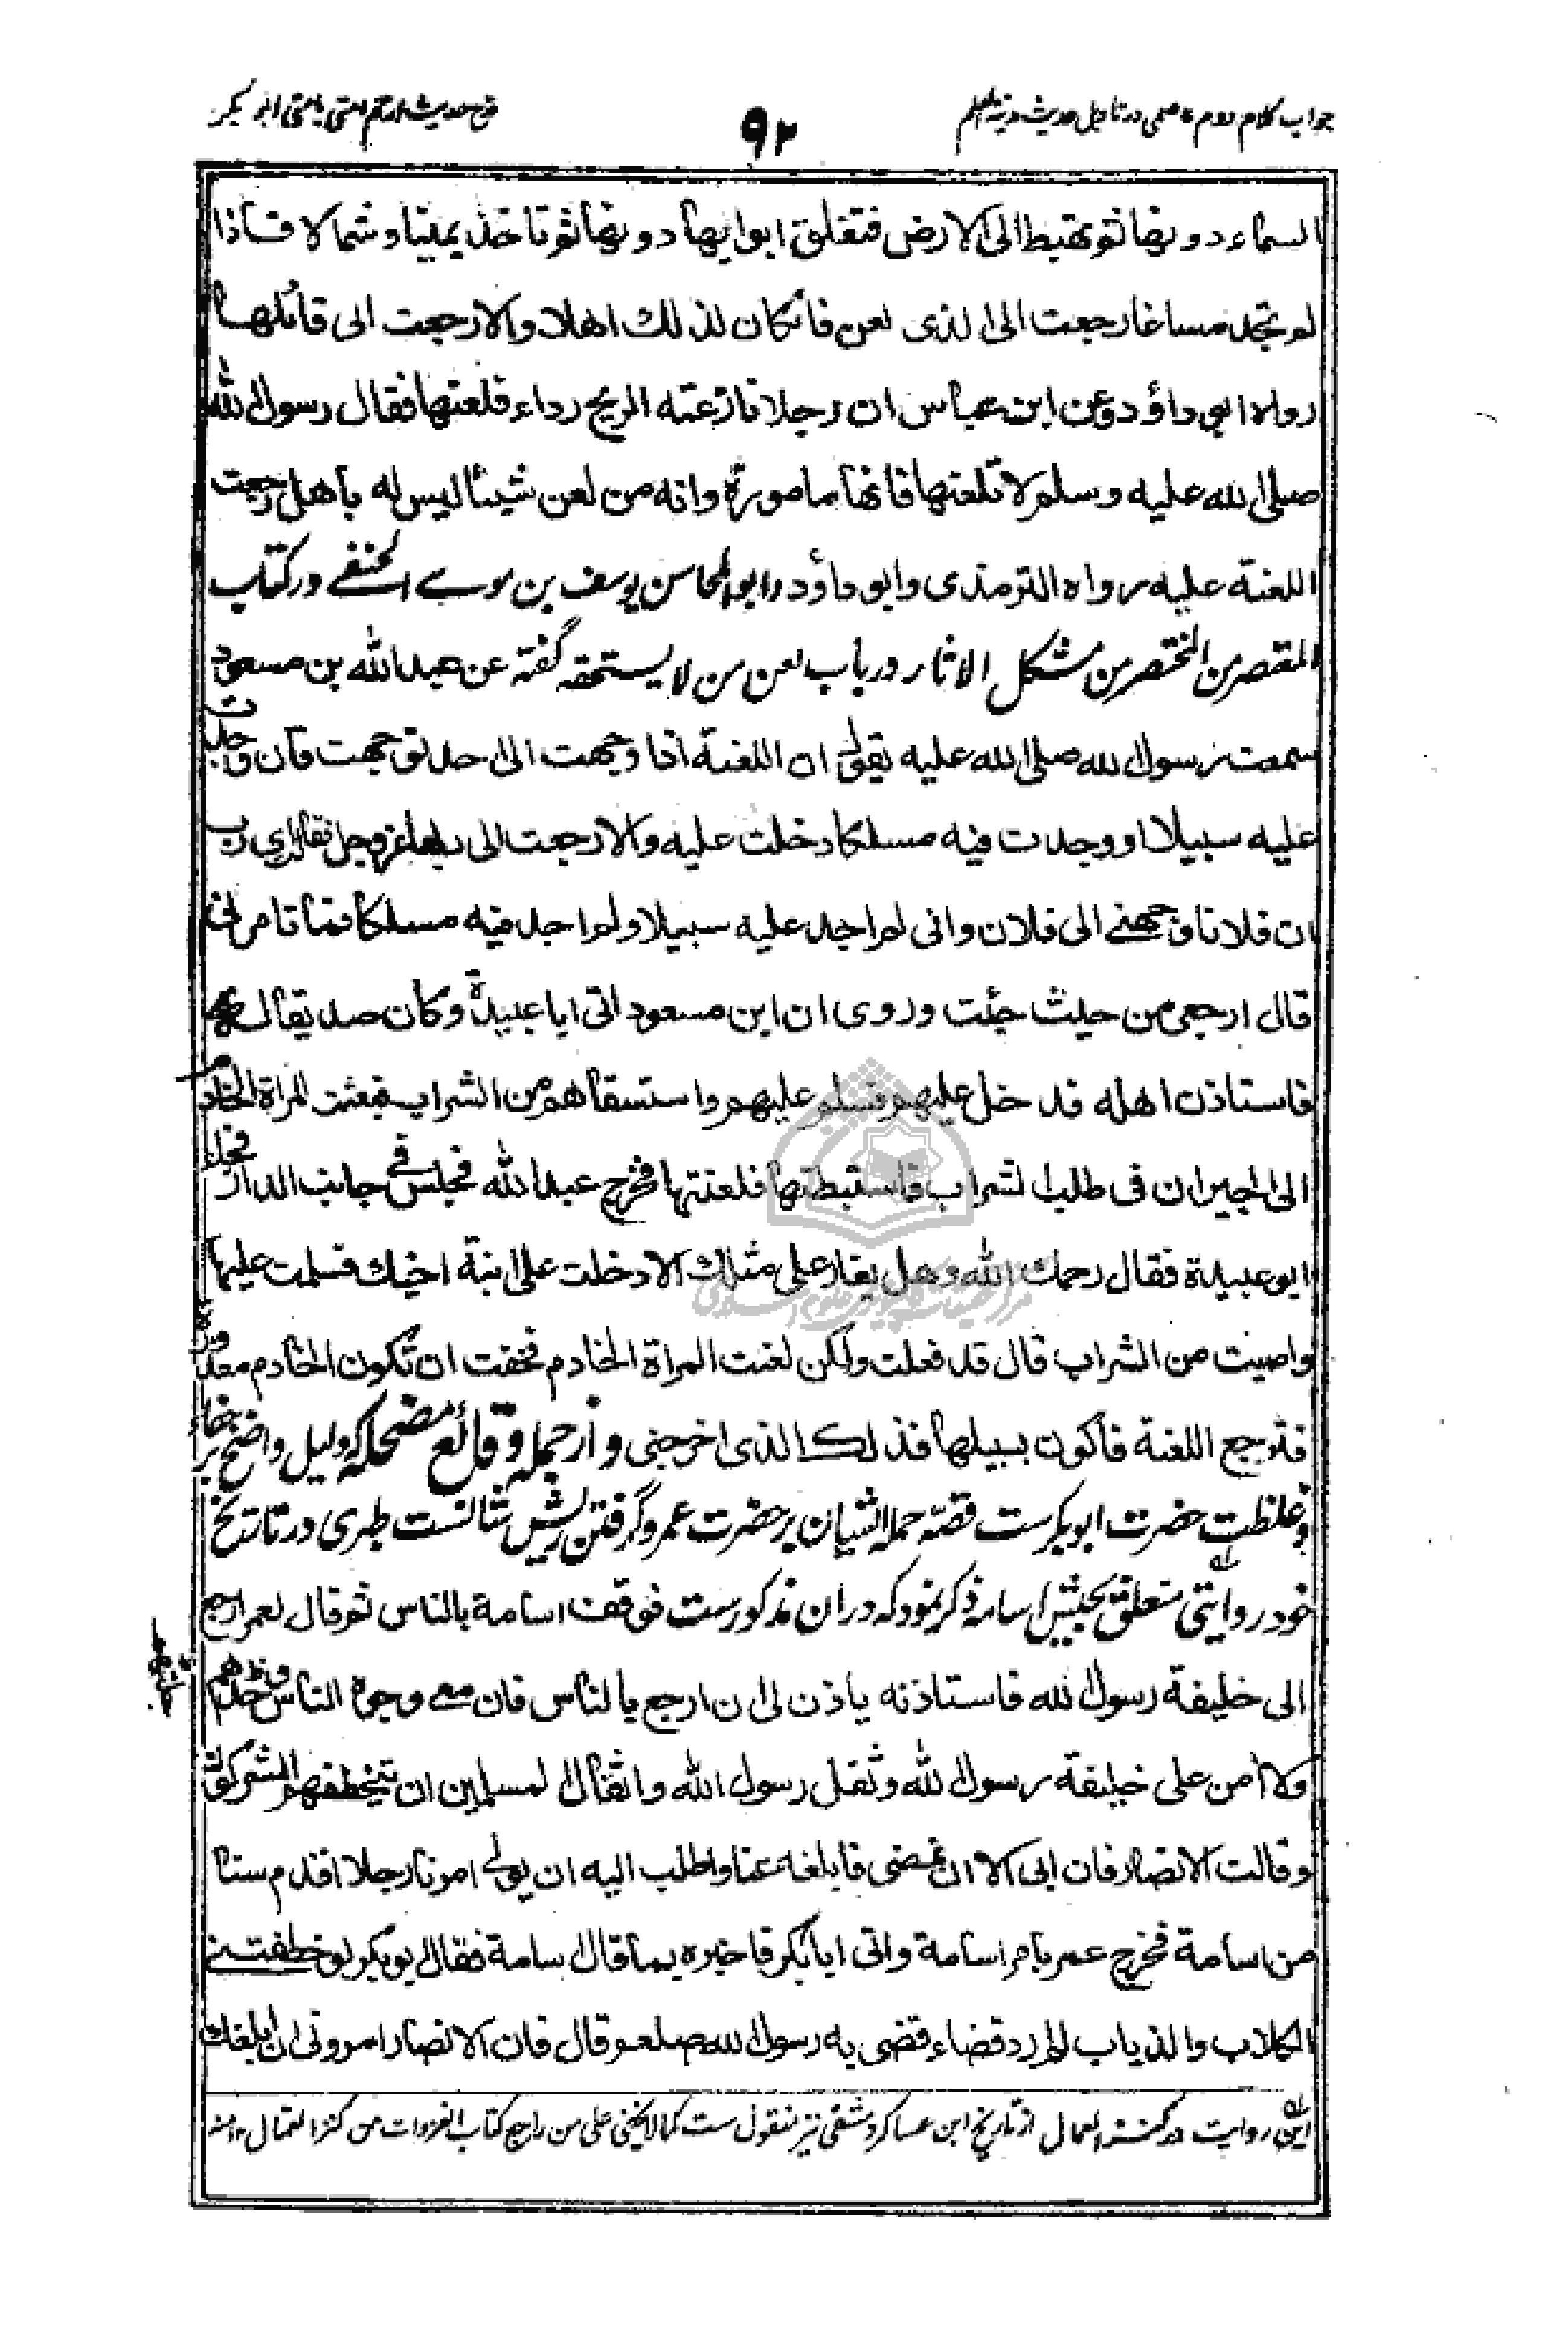 جواب کلام دوم عاصمی در تاویل حدیث مدینة العلم
۹۲
قدح حدیث ارحم امتی بامتی ابو بکر
السماء دونها ثم تهبط الى الارض فتغلق ابوابها دونها ثم تاخذ يمينا و شمالا فاذا
لم تجد مساغا رجعت الى الذى لعن فان كان لذلك اهلا والا رجعت الى قائلها
رواه ابو داؤد وعن ابن عباس ان رجلا نازعته الريح رداء فلعنها فقال رسول الله
صلى الله عليه وسلم لا تلعنها فانها مامورة وانه من لعن شيئا ليس له باهل رجعت
اللعنة عليه رواه الترمذى وابو داؤد و ابو المحاسن یوسف بن موسے الحنفے در کتاب
المقتصر من المختصر من مشكل الاثار در باب لعن من لا يستحقه گفته عن عبد الله بن مسعود
سمعت رسول الله صلى الله عليه يقول ان اللعنة اذا وجهت الى احد توجهت فان وجدت
عليه سبيلا او وجدت فيه مسلكا دخلت عليه والا رجعت الى ربها عز وجل فقالت اى رب
ان فلانا وجهنے الى فلان وانى لم اجد عليه سبيلا ولم اجد فيه مسلكا فما تامرنى
قال ارجعى من حيث جئت وروى ان ابن مسعود اتى ابا عبيدة وكان صديقا لهم
فاستاذن اهله فدخل عليهم فسلم عليهم واستسقاهم من الشراب فبعثت المراة الخادم
الى الجيران فى طلب الشراب فاستبطتها فلعنتها فخرج عبد الله فجلس فى جانب الدار فجاء
ابو عبيدة فقال رحمك الله وهل يغار على مثلك الا دخلت على ابنة اخيك فسلمت عليها
واصبت من الشراب قال قد فعلت ولكن لعنت المراة الخادم فخفت ان تكون الخادم معذورة
فترجع اللعنة فاكون بسبيلها فذلك الذى اخرجنى و از جمله وقائع مضحکه که دلیل واضح بر جفاء
و غلظت حضرت ابو بکرست قصّه حمله الشیان بر حضرت عمر و گرفتن ریش شانست طبری در تاریخ
خود روایتی متعلق بجیش اسامه ذکر نموده که در ان مذکورست فوقف اسامة بالناس ثم قال لعمر ارجع
الى خليفة رسول الله فاستاذنه ياذن لى ان ارجع بالناس فان معے وجوه الناس وحدهم
ولا امن على خليفة رسول الله وثقل رسول الله واثقال المسلمين ان يتخطفهم المشركون
وقالت الانصار فان ابى الا ان نمضى فابلغه عنا واطلب اليه ان يولے امرنا رجلا اقدم سنا
من اسامة فخرج عمر بامر اسامة واتى ابا بكر فاخبره بما قال اسامة فقال ابو بكر لو خطفتنے
الكلاب والذياب لم ارد قضاء قضى به رسول الله صلعم قال فان الانصار امرونى ان ابلغك
این روایت در کنز العمال از تاریخ ابن عساکر دمشقی نیز منقول ست کما لا یخفی علی من راجع کتاب الغزوات من کنز العمال ۱۲ منه